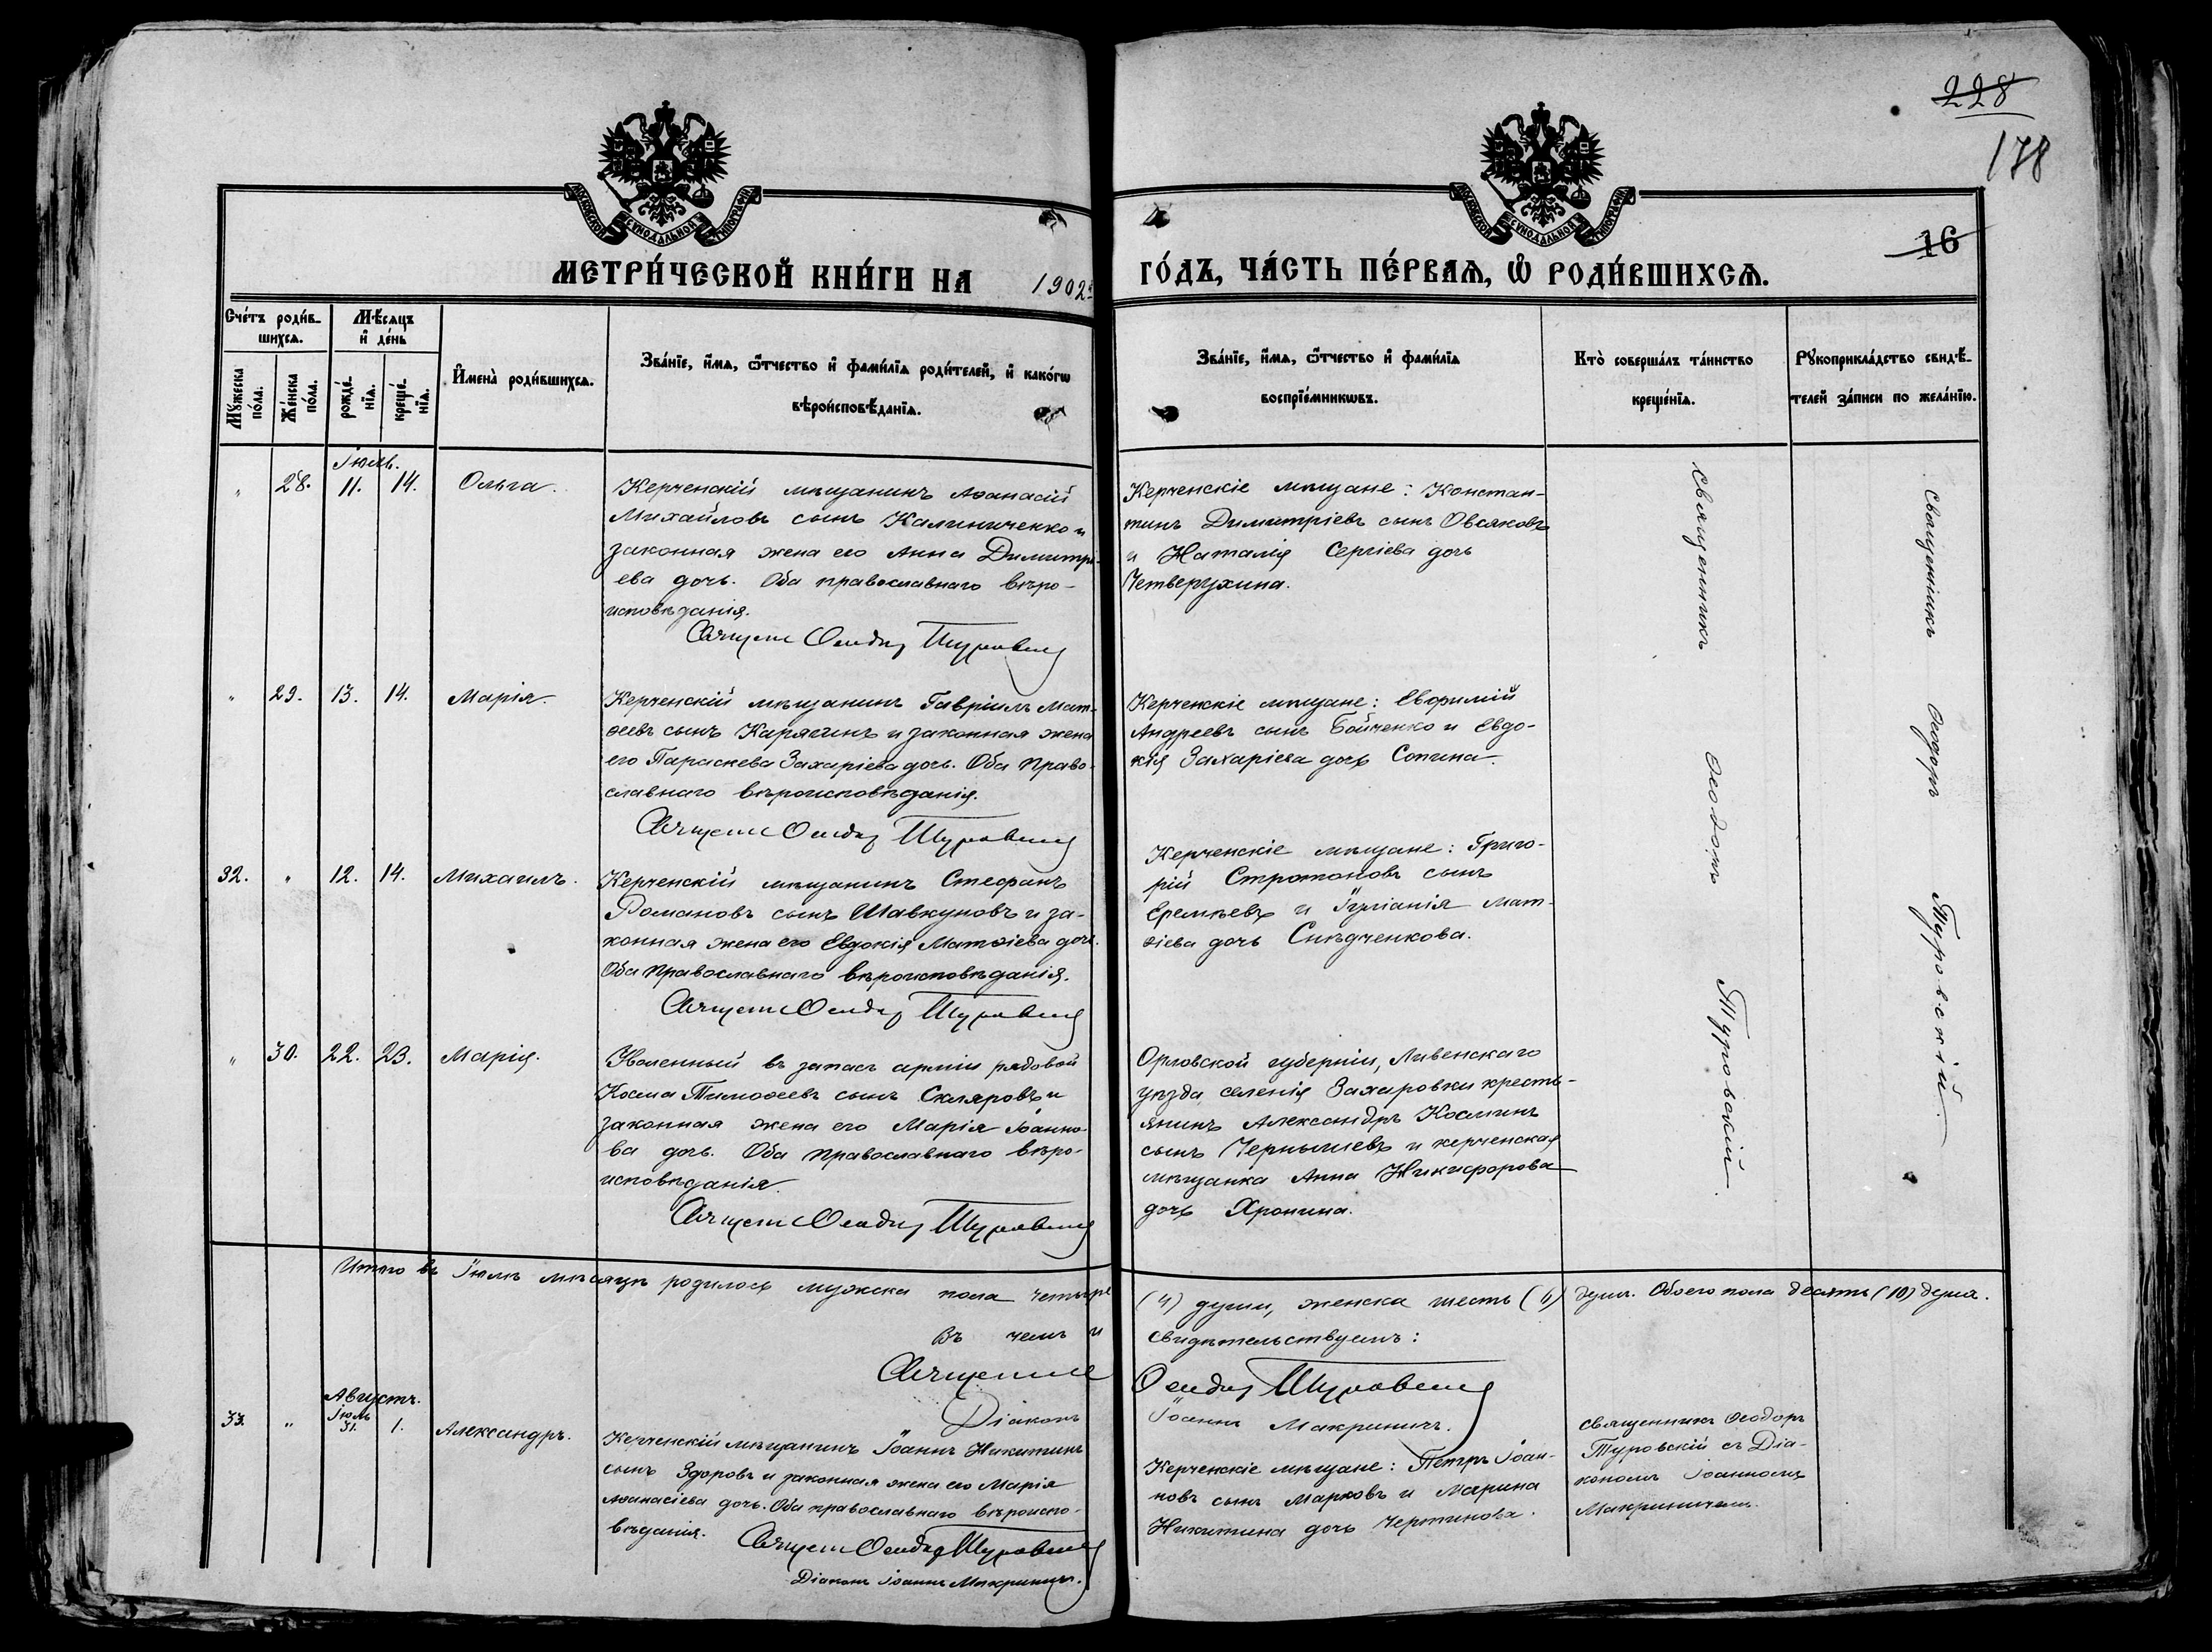 228
178
16
МОСКОВСКОЙ СѴНОДАЛЬНОЙ ТИПОГРАФІИ
МОСКОВСКОЙ СѴНОДАЛЬНОЙ ТИПОГРАФІИ
МЕТРИ́ЧЕСКОЙ КНИ́ГИ НА 1902й
ГО́ДЪ, ЧА́СТЬ ПЕ́РВАѦ, Ѽ РОДИ́ВШИХСѦ.
Сче́тъ роди́в-
шихсѧ.
Мꙋ́жеска
по́ла.
Же́нска
по́ла.
Мѣ́сѧцъ
и҆ де́нь
рожде́-
нїѧ.
креще́-
нїѧ.
И҆мена̀ роди́вшихсѧ.
Зва́нїе, и҆́мѧ, ѻ҆́тчество и҆ фами́лїѧ роди́телей, и҆ како́гѡ
вѣроисповѣ́данїѧ.
Зва́нїе, и҆́мѧ, ѻ҆́тчество и҆ фами́лїѧ
воспрїе́мникѡвъ.
Кто̀ соверша́лъ та́инство
креще́нїѧ.
Рꙋкоприкла́дство свидѣ́-
телей за́писи по жела́нїю.
Іюль.
" 28. 11. 14. Ольга.
Керченскій мѣщанинъ Аѳанасій
Михайловъ сынъ Калиниченко и
законная жена его Анна Димитрі-
ева дочь. Оба православнаго вѣро-
исповѣданія.
Священ Ѳеодоръ Туровскій
Керченскіе мѣщане: Констан-
тинъ Димитріевъ сынъ Овсяковъ
и Наталія Сергіева дочь
Четверухина.
" 29. 13. 14. Марія.
Керченскій мѣщанинъ Гавріилъ Мат-
ѳеевъ сынъ Карягинъ и законная жена
его Параскева Захаріева дочь. Оба право-
славнаго вѣроисповѣданія.
Священ Ѳеодоръ Туровскій
Керченскіе мѣщане: Евфимій
Андреевъ сынъ Бойченко и Евдо-
кія Захаріева дочь Сопина.
32. " 12. 14. Михаилъ.
Керченскій мѣщанинъ Стефанъ
Романовъ сынъ Шавкуновъ и за-
конная жена его Евдокія Матѳіева дочь.
Оба православнаго вѣроисповѣданія.
Священ Ѳеодоръ Туровскій
Керченскіе мѣщане: Григо-
рій Стратоновъ сынъ
Еремѣевъ и Іуліанія Мат-
ѳіева дочь Снѣдченкова.
" 30. 22. 23. Марія.
Уволенный въ запасъ арміи рядовой
Косма Тимоѳеевъ сынъ Скляровъ и
законная жена его Марія Іоанно-
ва дочь. Оба православнаго вѣро-
исповѣданія.
Священ Ѳеодоръ Туровскій
Орловской губерніи, Ливенскаго
уѣзда селенія Захаровки кресть-
янинъ Александръ Косминъ
сынъ Чернышевъ и керченская
мѣщанка Анна Никифорова
дочь Хронина.
Священникъ Ѳеодоръ Туровскій.
Священникъ Ѳеодоръ Туровскій.
Итого въ Іюлѣ мѣсяцѣ родилось мужска пола четыре (4) души, женска шесть (6) душъ. Обоего пола десять (10) душъ.
Въ чемъ и свидѣтельствуемъ:
Священник Ѳеодоръ Туровскій
Діаконъ Іоаннъ Макриничъ.
Августъ.
Іюль
33. " 31. 1. Александръ.
Керченскій мѣщанинъ Іоаннъ Никитинъ
сынъ Здоровъ и законная жена его Марія
Аѳанасіева дочь. Оба православнаго вѣроиспо-
вѣданія.
Священ Ѳеодоръ Туровскій
Діаконъ Іоаннъ Макриничъ.
Керченскіе мѣщане: Петръ Іоан-
новъ сынъ Марковъ и Марина
Никитина дочь Чертинова.
Священникъ Ѳеодоръ
Туровскій съ Діа-
кономъ Іоанномъ
Макриничемъ.